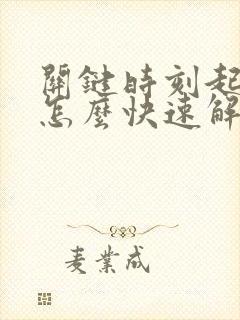 關鍵時刻起
怎麼快速解
麦業成